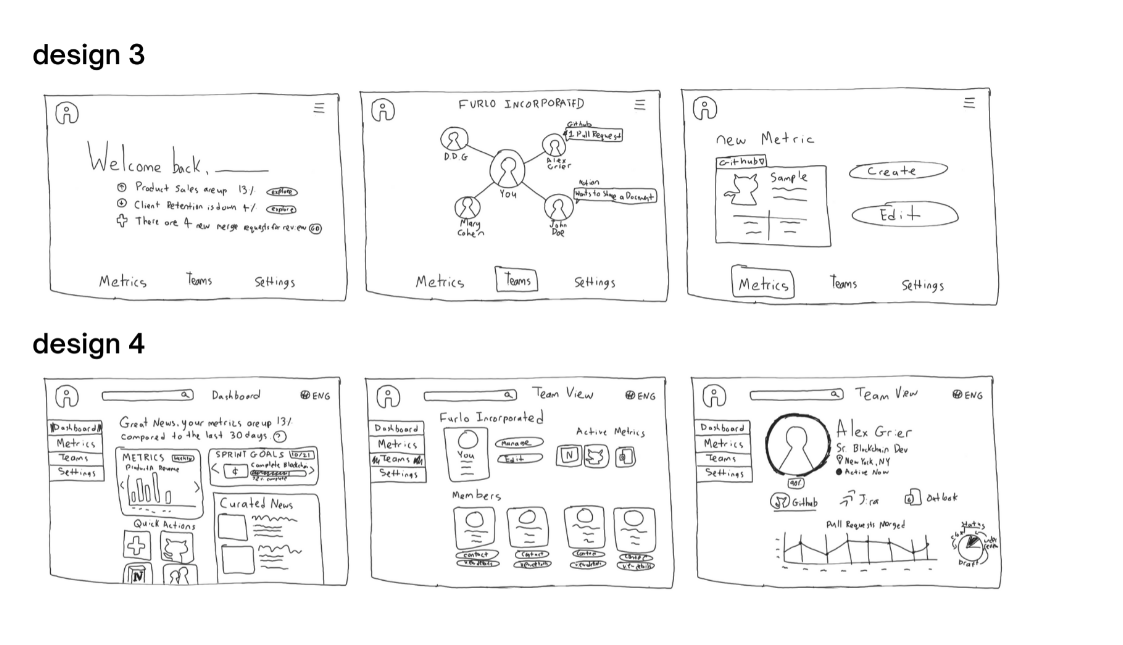 design 3
Welcome back,
Product Sales are up 13% explore
Client Retention is down 4% explore
There are 4 new merge requests for review GO
Metrics Teams Settings
FURLO INCORPORATED
Github
1 Pull Request
D.D.G
Alex
Grier
You
Notion
Wants to Share a Document
Mary
Cohen
John
Doe
Metrics Teams Settings
new Metric
Github
Sample
Create
Edit
Metrics Teams Settings
design 4
Dashboard ENG
Dashboard
Metrics
Teams
Settings
Great News, your metrics are up 13%
compared to the last 30 days
METRICS Weekly
Products Revenue
SPRINT GOALS 10/21
Complete
Curated News
Quick Actions
N
Team View ENG
Dashboard
Metrics
Teams
Settings
Furlo Incorporated
You
Manage
Edit
Active Metrics
N
Members
contact contact contact contact
view details view details view details view details
Team View ENG
Dashboard
Metrics
Teams
Settings
Alex Grier
Sr. Blockchain Dev
New York, NY
Active Now
Github Jira Outlook
Pull Requests Merged
Status
Draft